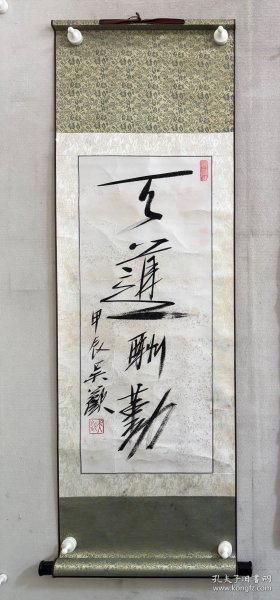 天道酬勤
甲辰吴欢
孔夫子旧书网